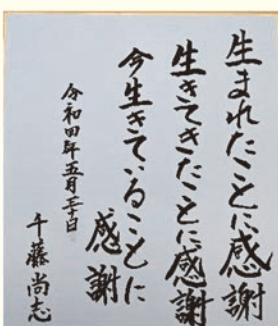 生まれたことに感謝
生きてきたことに感謝
今生きていることに
感謝
令和四年五月二十日
千藤尚志